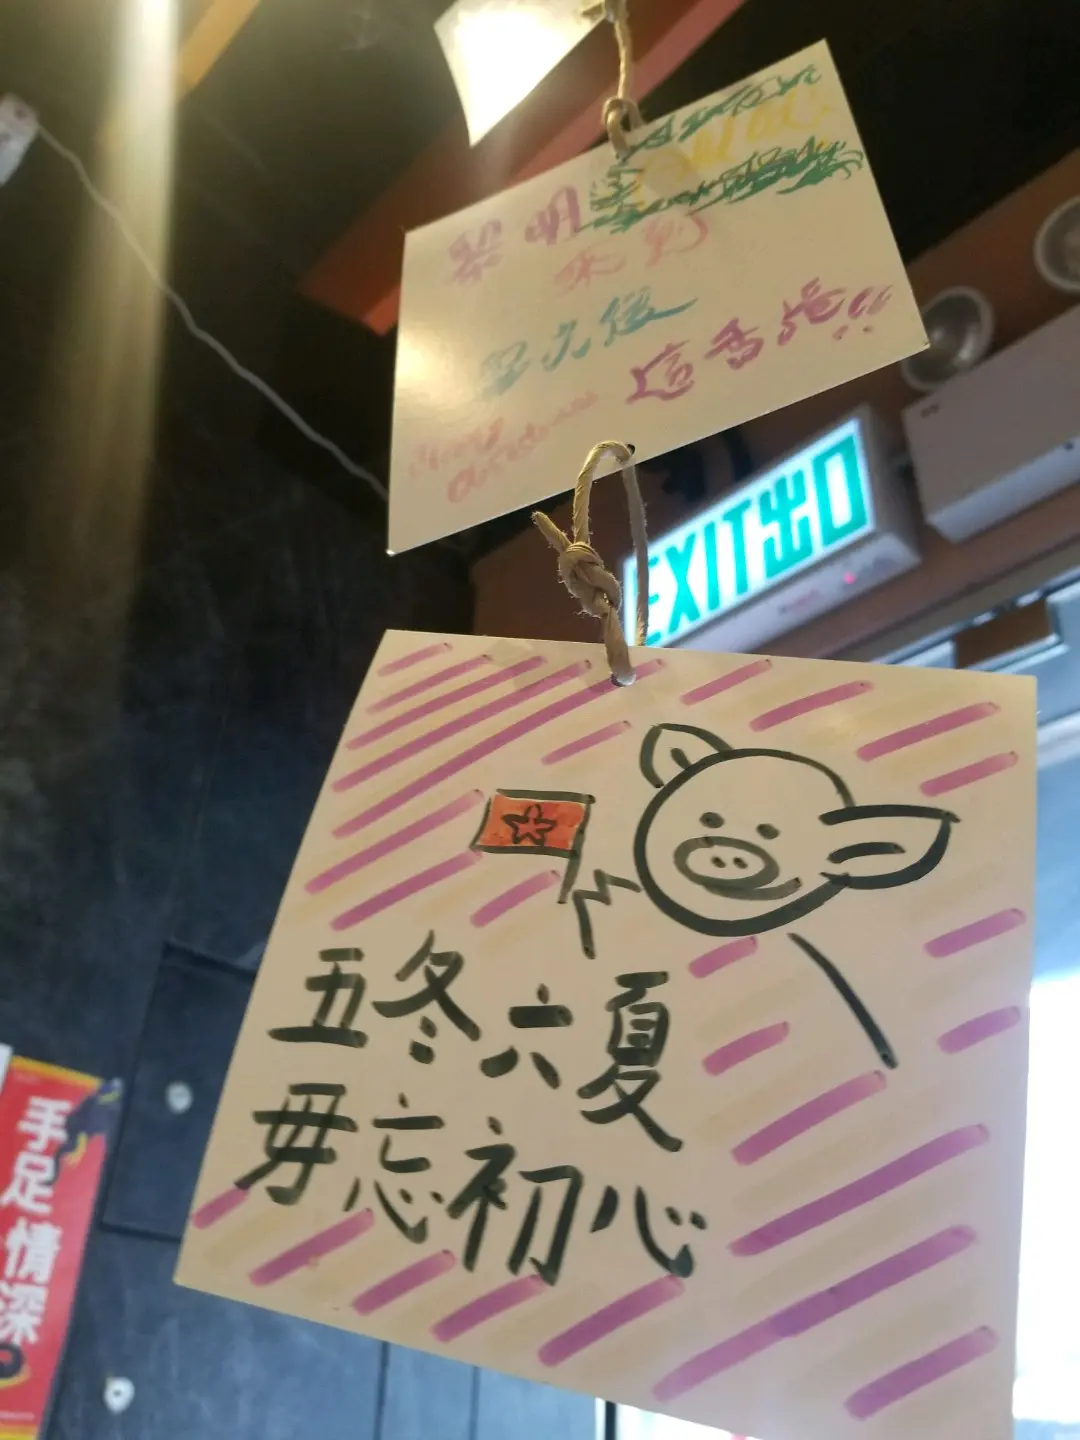 黎明來到
這香港!!
EXIT出口
五冬六夏
毋忘初心
手足情深